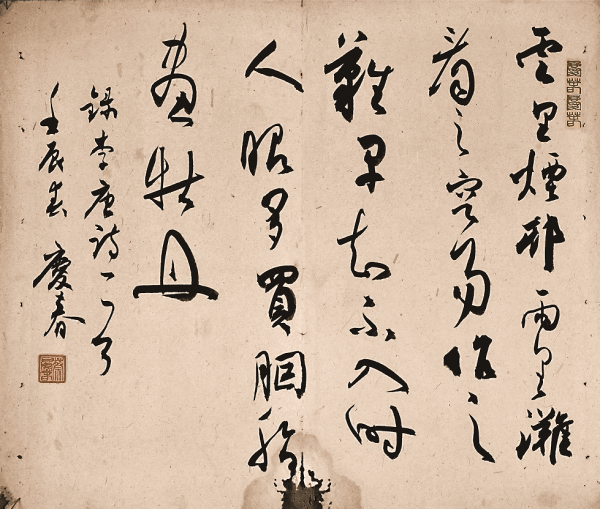 雲里煙邨雨里灘
看之容易作之
難早知不入時
人眼多買胭脂
畫牡丹
錄李唐詩一首
壬辰春 慶春